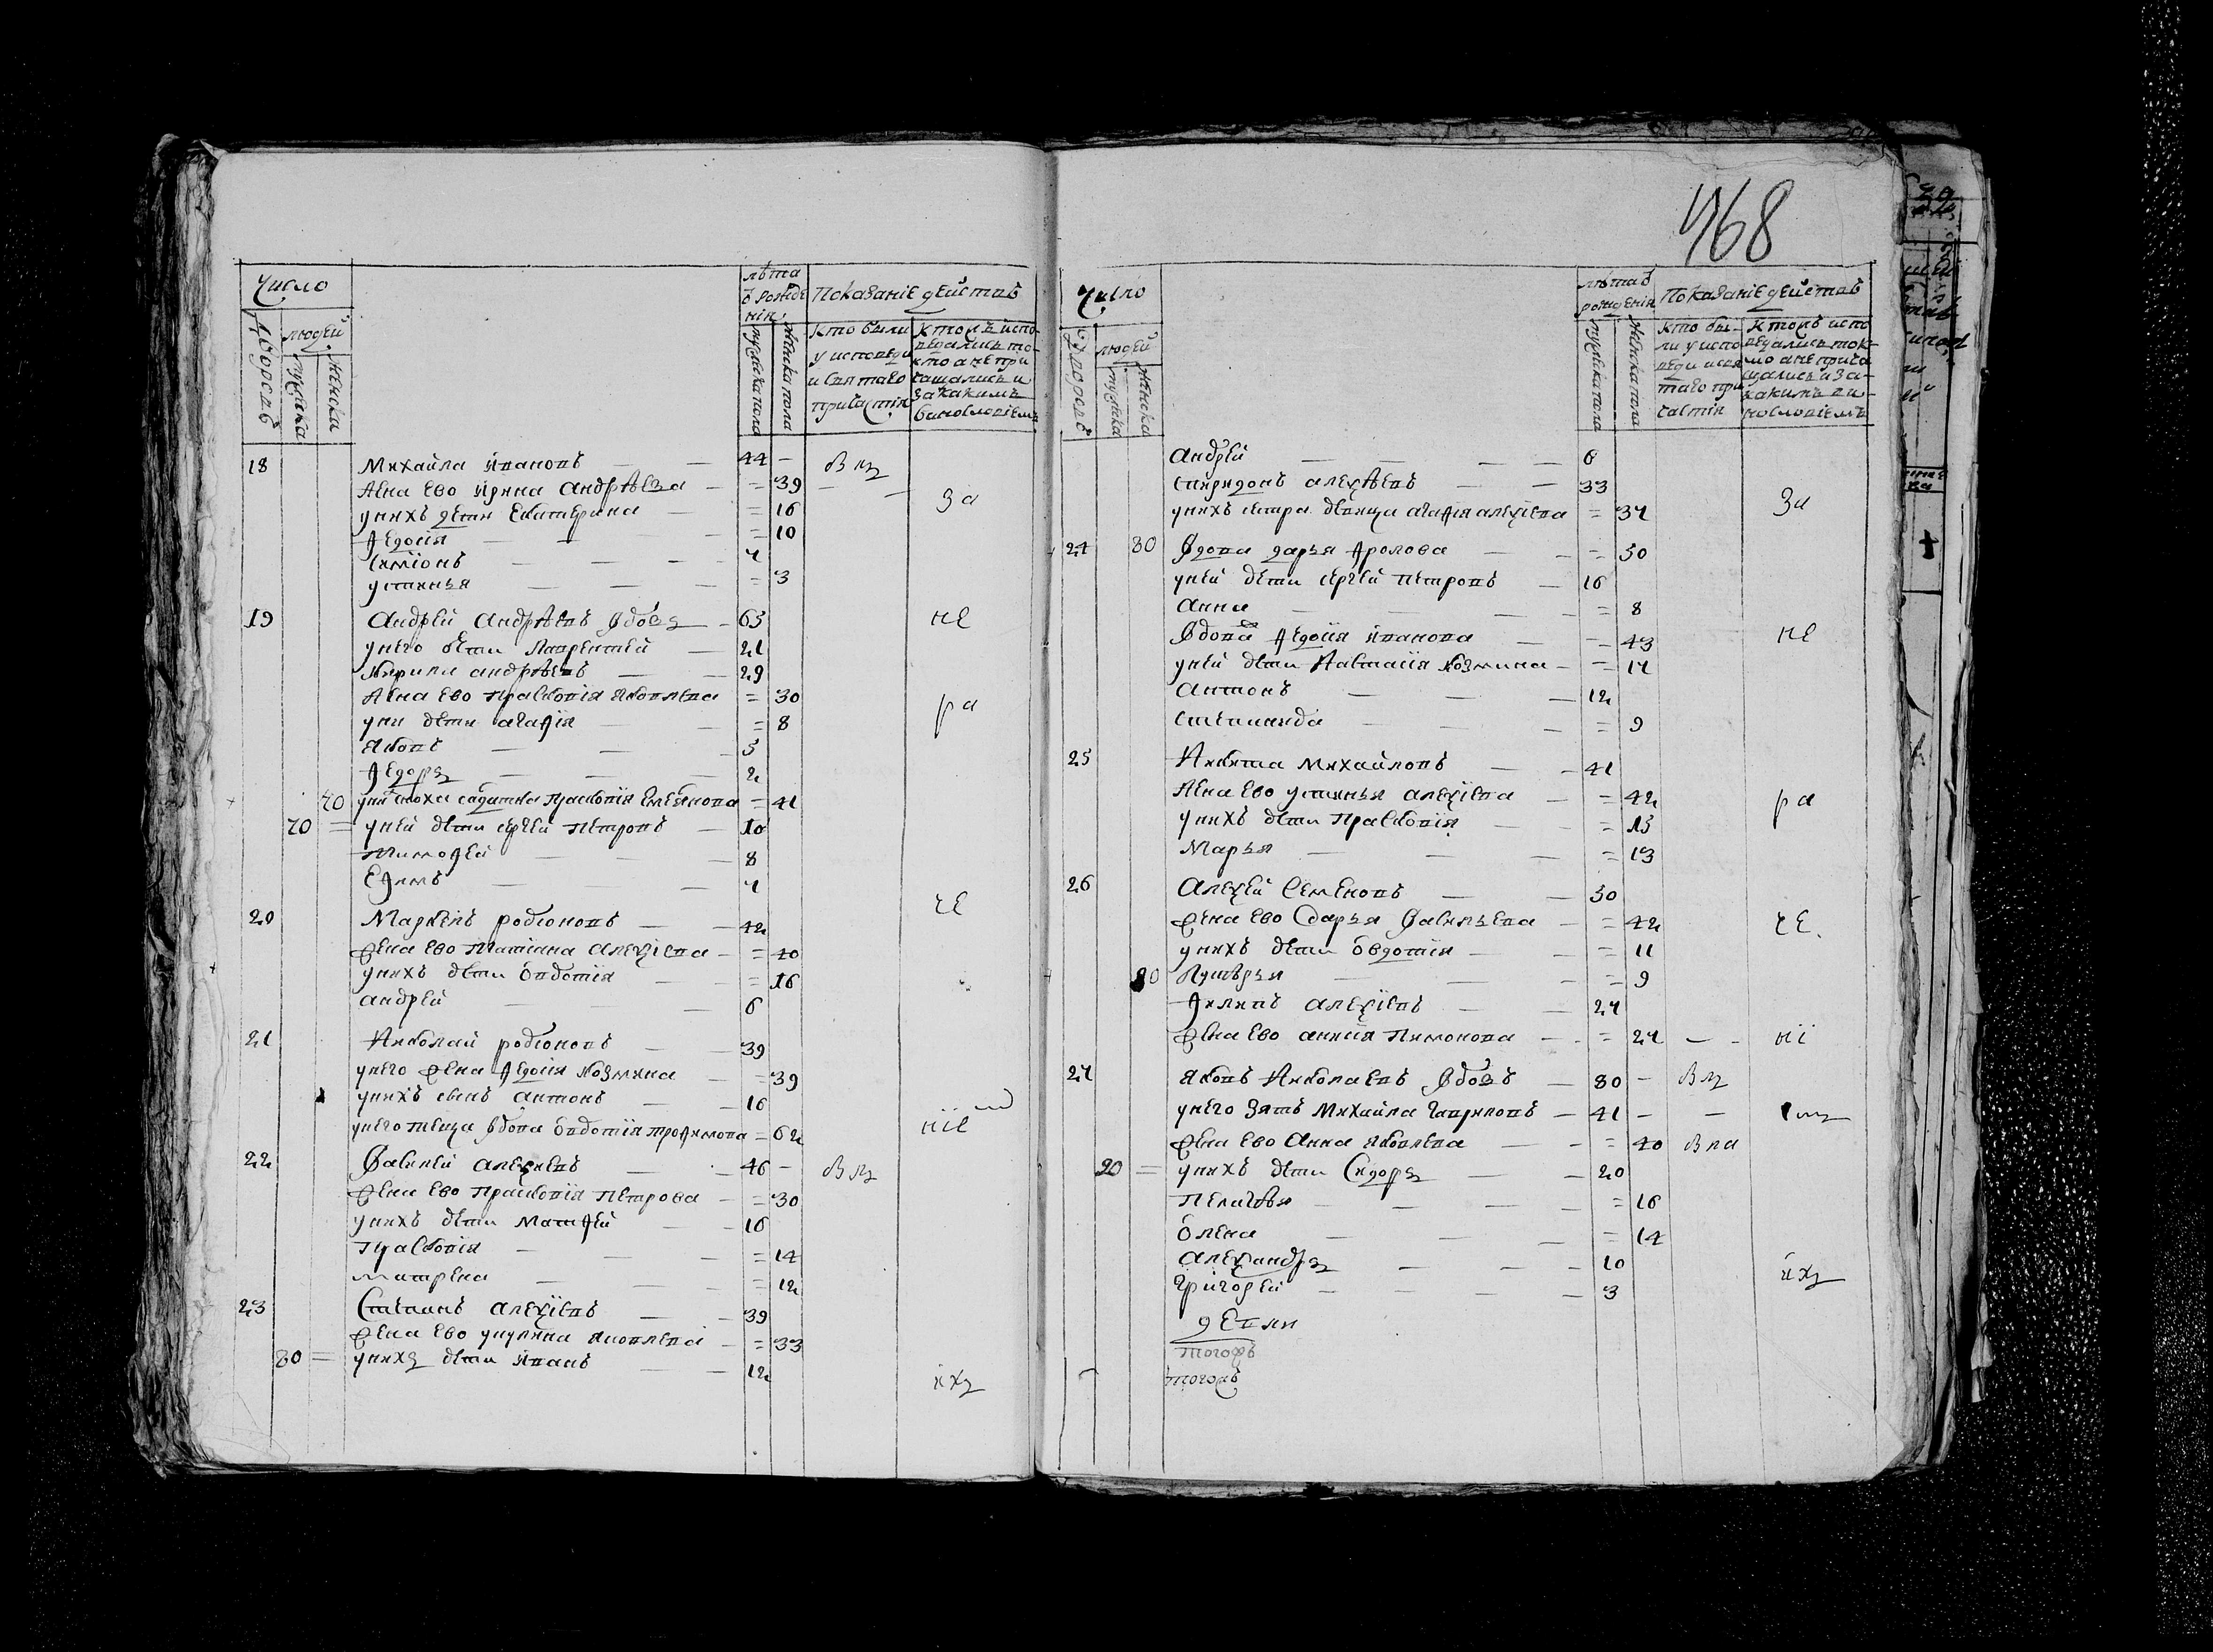 468
Число
лѣта
ѿ рожде
нія
Показаніе действъ
Дворовъ
людей
мужска
женска
мужска пола
женска пола
кто были
у исповеди
и святаго
причастія
кто исповедались токмо а не при
чащались и
за какимъ
винословіемъ
18 Михайла ивановъ — 44 — вла
жена ево ирина андрѣева = 39
унихъ дети екатерина = 16
федосія = 10
симіонъ 4
устинья = 3
за
19 Андрей андрѣевъ вдовъ 63
унего дети лаврентей 21
кирила андрѣевъ 29
жена ево прасковія яковлева = 30
уни дети агафія = 8
яковъ 5
федоръ 2
не
ра
70 прасковія емельянова = 41
70 = уней дети сергей петровъ 10
тимофей 8
ефимъ 4
20 Маркелъ родіоновъ 42
жена ево татіана алексіева = 40
унихъ дети овдотія = 16
андрей 6
че
21 Николай родіоновъ 39
унего жена федосія козмина = 39
унихъ сынъ антонъ 16
унего теща вдова овдотія трофимова = 62
ніе
22 Василей алексѣевъ 46 —
жена ево прасковія петрова = 30
унихъ дети матфей 16
прасковія = 14
матрена = 12
23 Степанъ алексіевъ 39
жена ево улияна яковлева = 33
80 = унихъ дети иванъ 12
ихъ
Число
лѣта ѿ
рожденія
Показаніе действъ
дворовъ
людей
мужска
женска
мужска пола
женска пола
кто бы-
ли у испо
веди и свя
таго при
частія
кто исповедались ток-
мо а не прича
щались и за-
какимъ ви-
нословіемъ
андрей 6
спиридонъ алексѣевъ 33
унихъ сестра девица агафія алексіева = 34
за
24 80 Вдова дарья фролова = 50
уней дети сергей петровъ 16
анна = 8
Вдова федосія иванова = 43
уней дети настасія козмина = 14
антонъ 12
степанида = 9
не
25 Никита михайловъ 41
жена ево устинья алексіева = 42
унихъ дети прасковія = 15
марья = 13
ра
26 Алексей семеновъ 50
жена ево дарья васильева = 42
унихъ дети овдотия = 11
90 лукерья = 9
филипъ алексіевъ 24
жена ево анисія пимонова = 24
че
ні
27 Яковъ николаевъ вдовъ 80 —
унего зять михайла гавриловъ 41 —
жена ево анна яковлева = 40
90 = унихъ дети сидоръ 20
пелагѣя = 16
олена = 14
александръ 10
григорей 3
ихъ